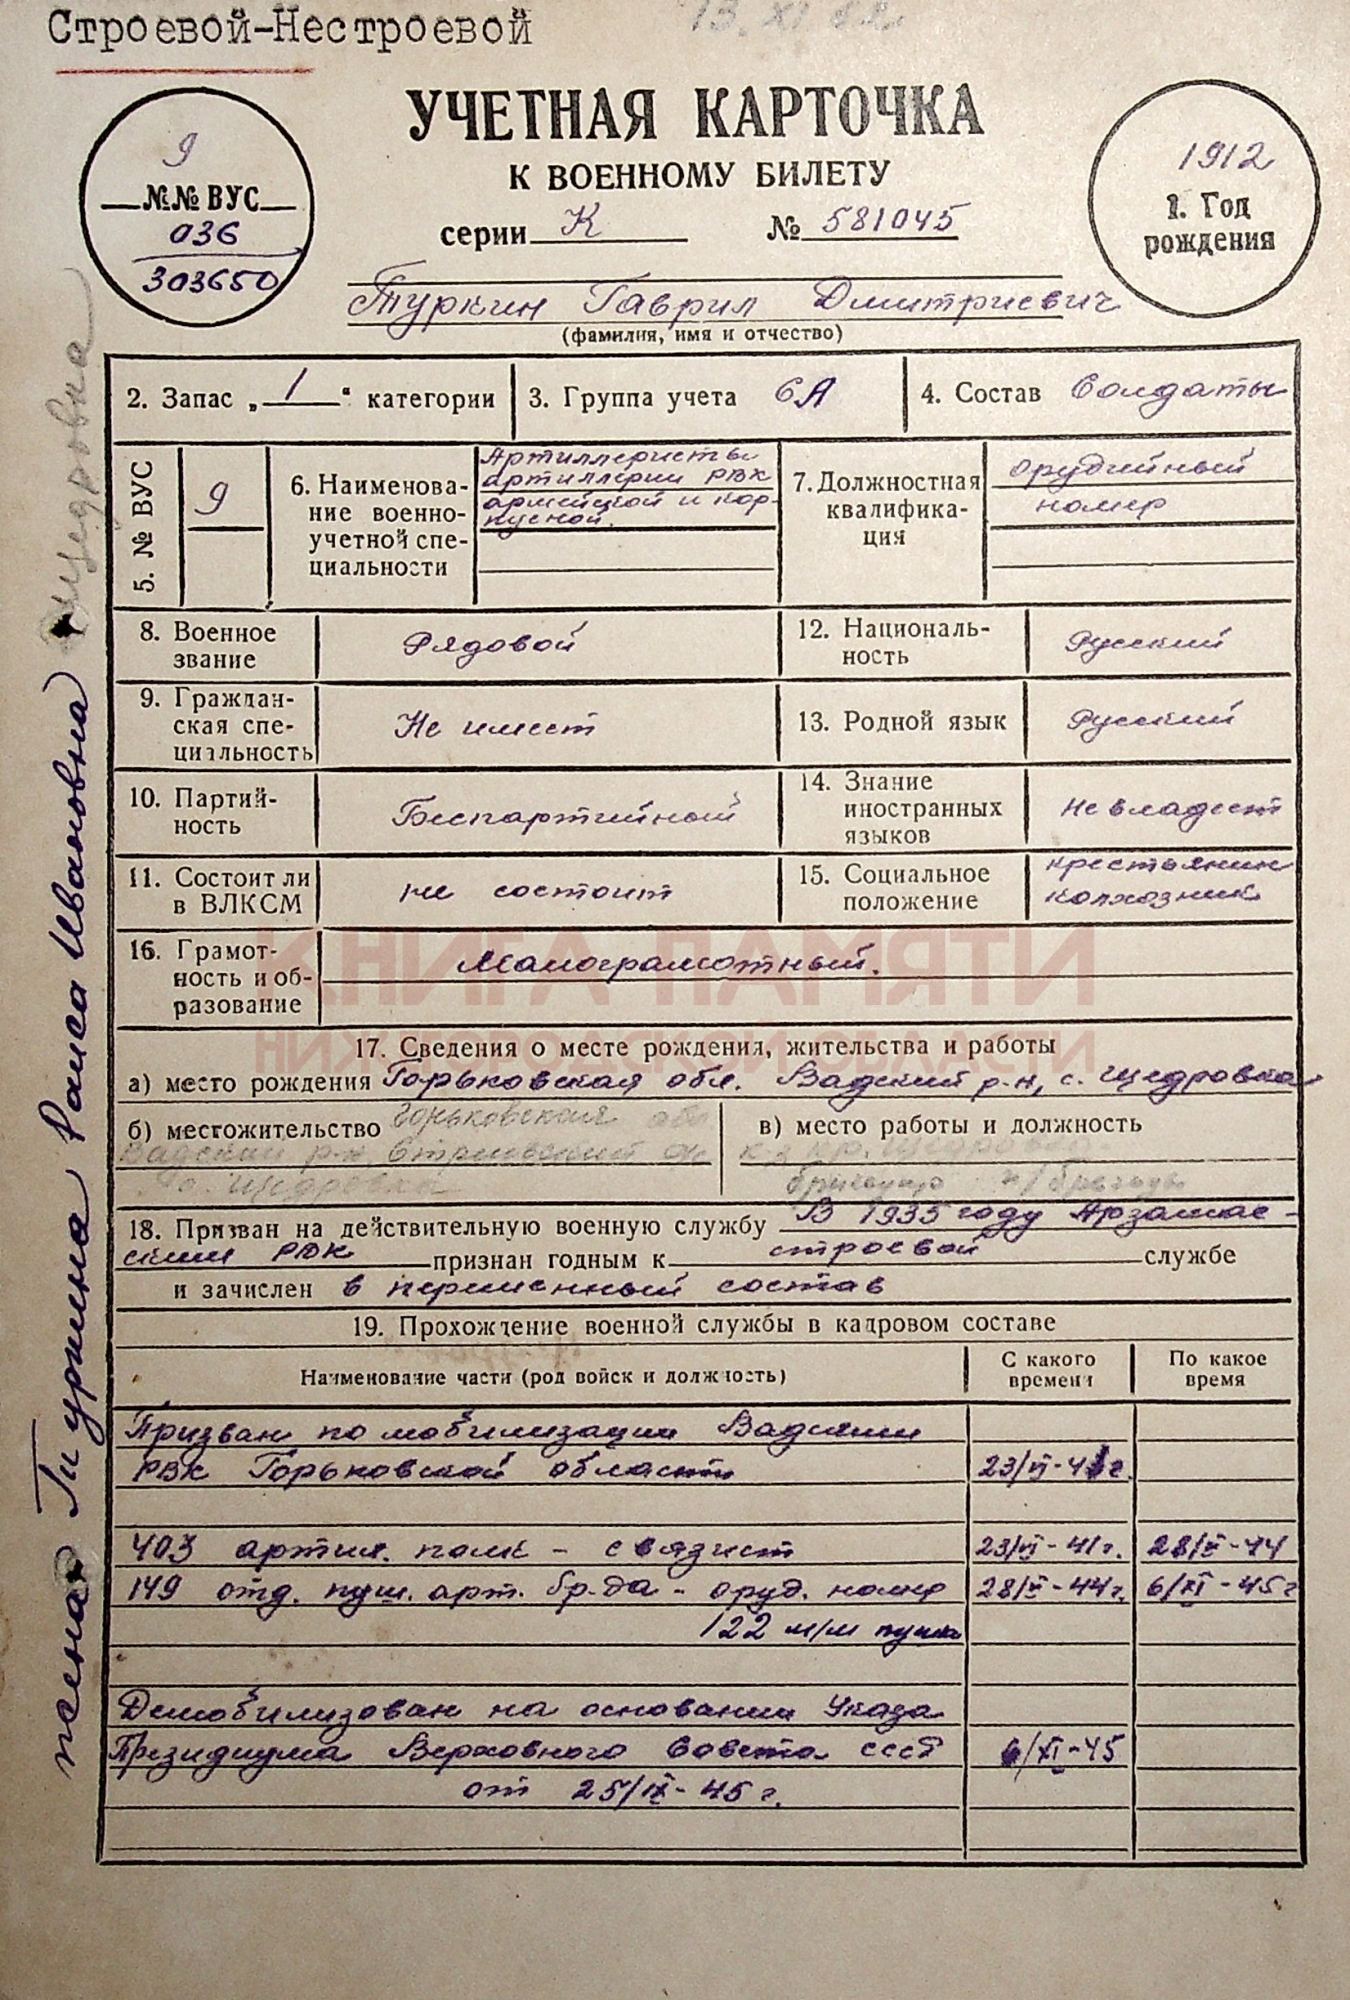 Строевой-Нестроевой
13. XI
УЧЕТНАЯ КАРТОЧКА
К ВОЕННОМУ БИЛЕТУ
серии К № 581045
9
№№ ВУС
036
303650
1912
1. Год
рождения
Туркин Гаврил Дмитриевич
(фамилия, имя и отчество)
2. Запас „ 1 " категории
3. Группа учета 6А
4. Состав Солдаты
5. № ВУС
9
6. Наименова-
ние военно-
учетной спе-
циальности
Артиллеристы
артиллерии РВК
армейской и кор-
пусной.
7. Должностная
квалифика-
ция
орудийный
номер
8. Военное
звание
Рядовой
12. Националь-
ность
Русский
9. Граждан-
ская спе-
циальность
Не имеет
13. Родной язык
Русский
10. Партий-
ность
Беспартийный
14. Знание
иностранных
языков
не владеет
11. Состоит ли
в ВЛКСМ
не состоит
15. Социальное
положение
крестьянин
колхозник
16. Грамот-
ность и об-
разование
Малограмотный.
КНИГА ПАМЯТИ
НИЖЕГОРОДСКОЙ ОБЛАСТИ
17. Сведения о месте рождения, жительства и работы
а) место рождения Горьковская обл. Вадский р-н, с. Щедровка
б) местожительство Горьковская обл
Вадский р-н
с. Щедровка
в) место работы и должность
18. Призван на действительную военную службу В 1935 году Арзамас-
ским РВК признан годным к строевой службе
и зачислен в переменный состав
19. Прохождение военной службы в кадровом составе
Наименование части (род войск и должность)
С какого
времени
По какое
время
Призван по мобилизации Вадским
РВК Горьковской области 23/VI-41г.
403 артил. полк - связист 23/VI-41г. 28/II-44
149 отд. пуш. арт. бр-да - оруд. номер 28/II-44г. 6/XI-45г
122 м/м пушка
Демобилизован на основании Указа
Президиума Верховного Совета СССР 6/XI-45
от 25/IX-45 г.
жена Раиса Ивановна
Щедровка